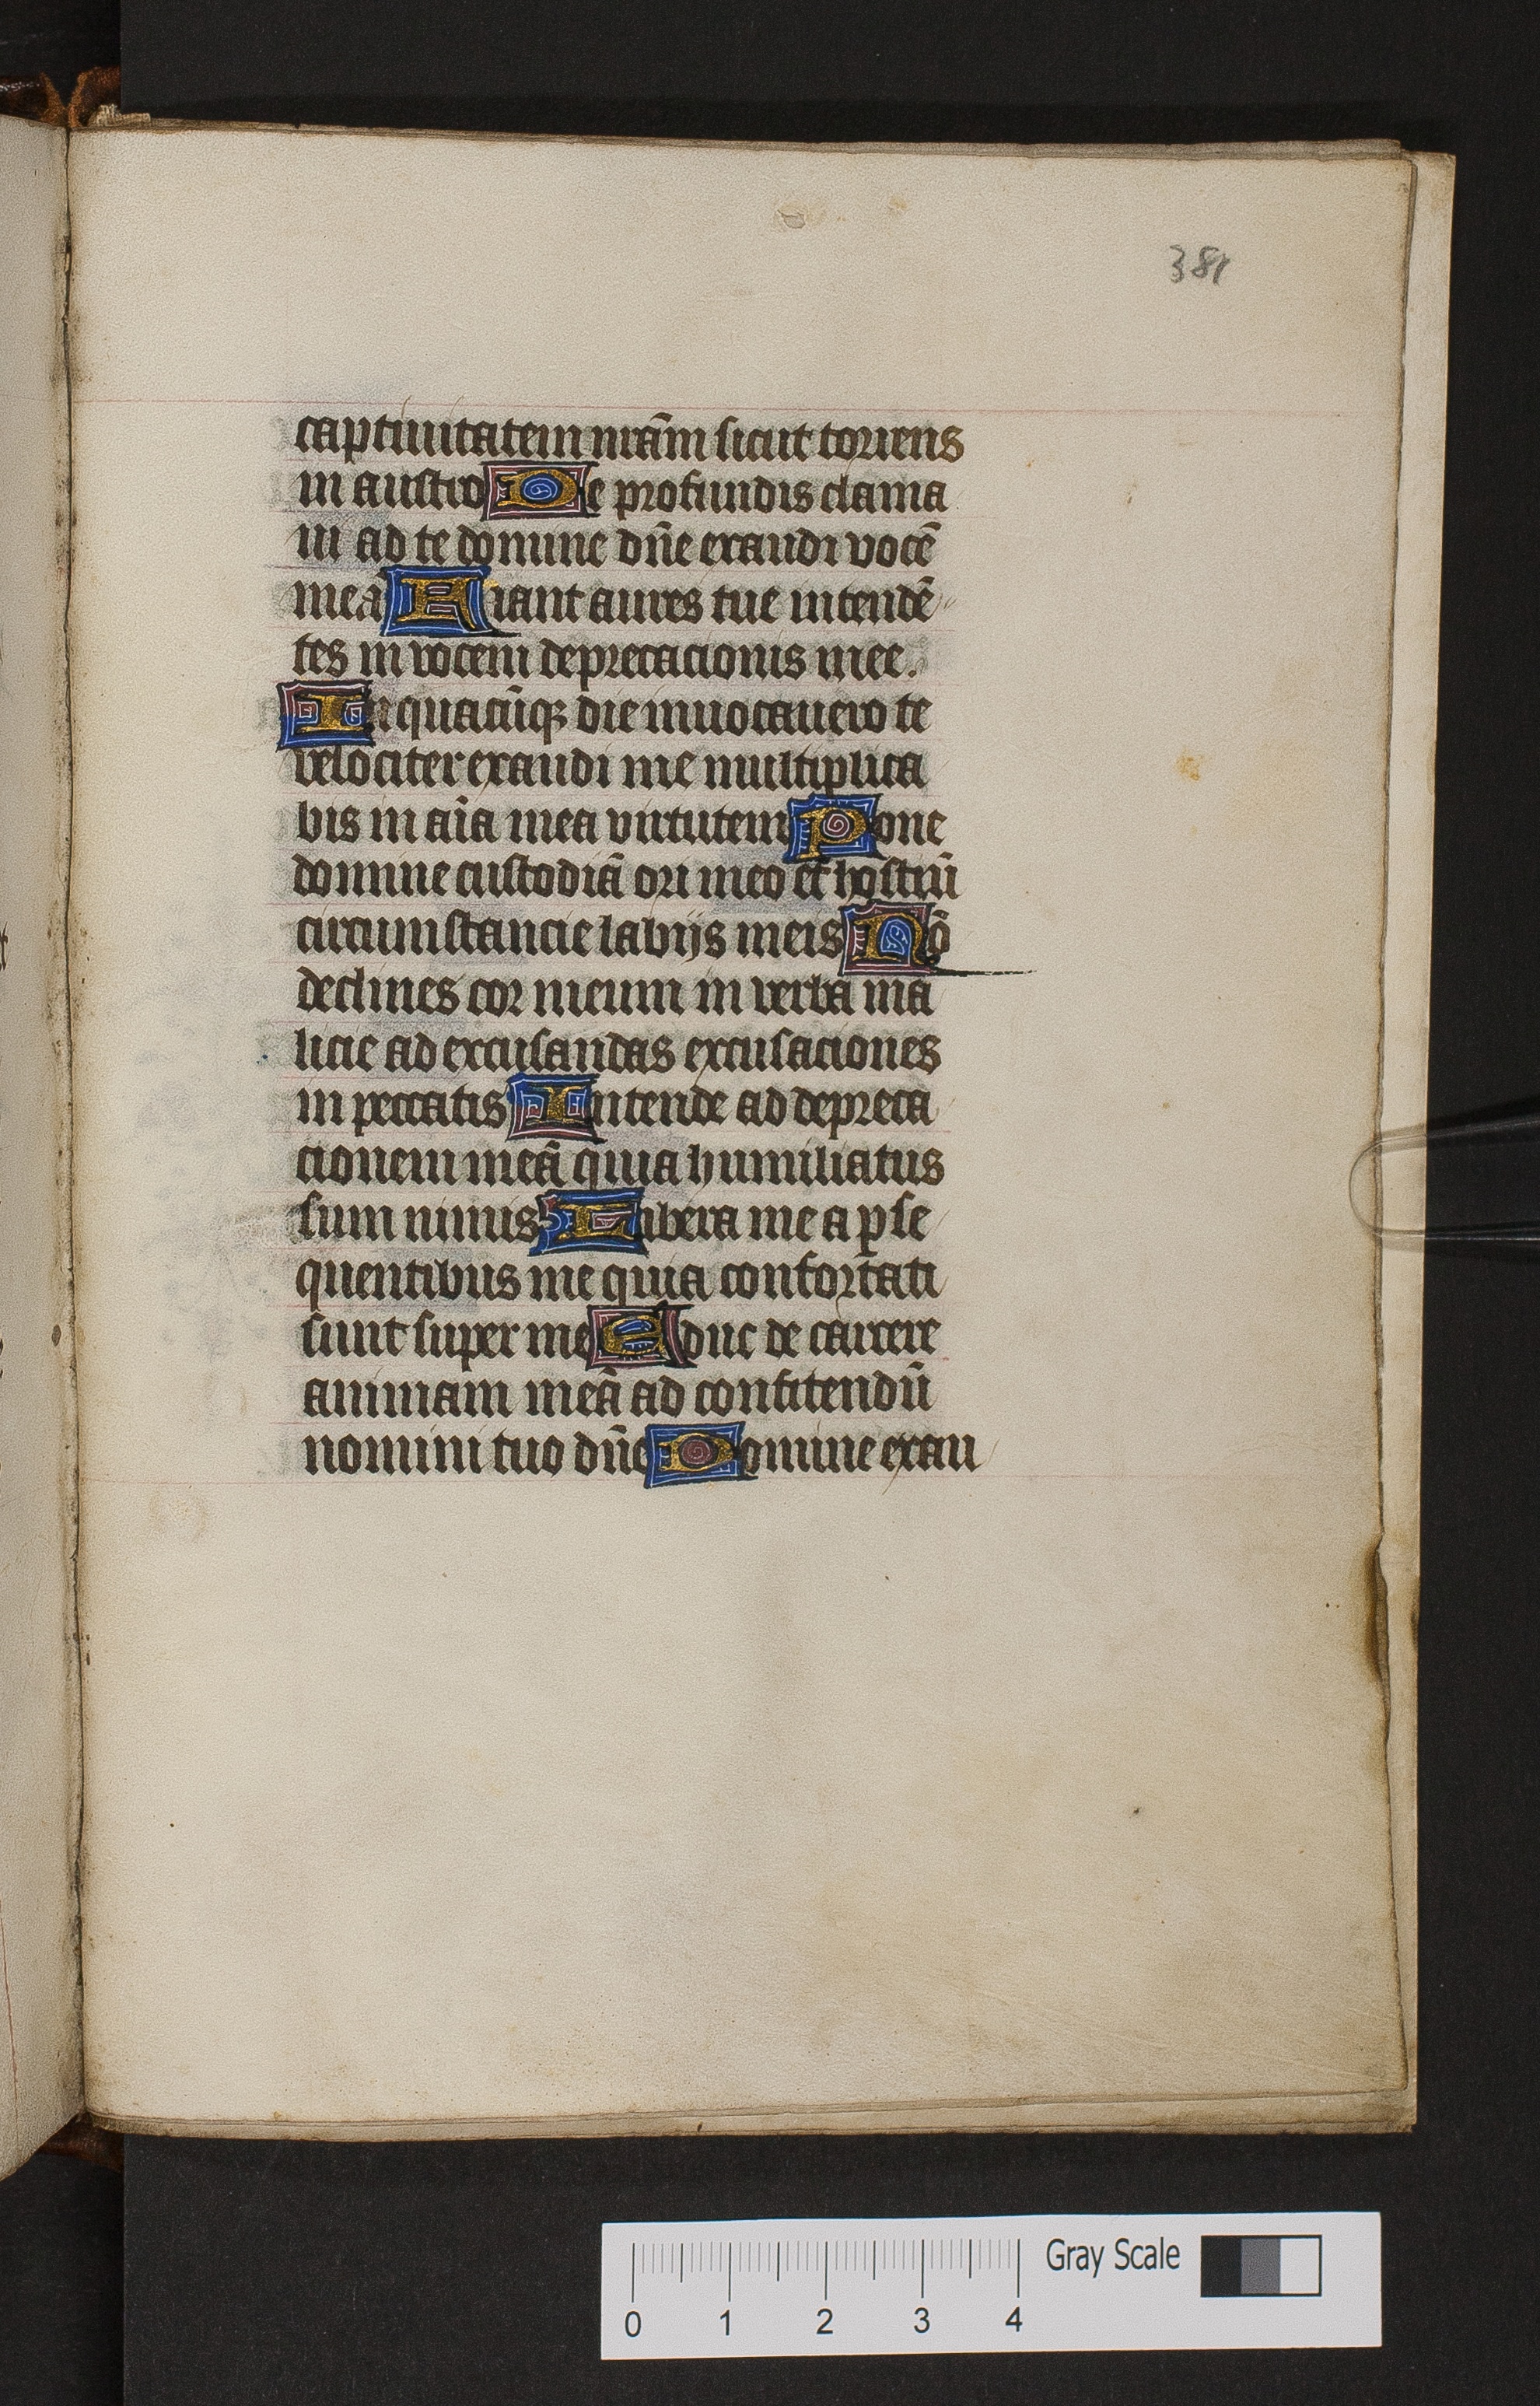 381
captiuitatem nr̄am sicut torrens
in austro De profundis clama
ui ad te domine dn̄e exaudi vocē
meā Fiant aures tue intendē
tes in vocem deprecacionis mee.
In quacūqꝫ die inuocauero te
velociter exaudi me multiplica
bis in aīa mea virtutem Pone
domine custodiā ori meo et hostiū
circumstancie labijs meis Nō
declines cor meum in verba ma
licie ad excusandas excusaciones
in peccatis Intende ad depreca
cionem meā quia humiliatus
sum nimis Libera me a ꝑse
quentibus me quia confortati
sunt super me Educ de carcere
animam meā ad confitendū
nomini tuo dn̄e Domine exau
Gray Scale
0 1 2 3 4